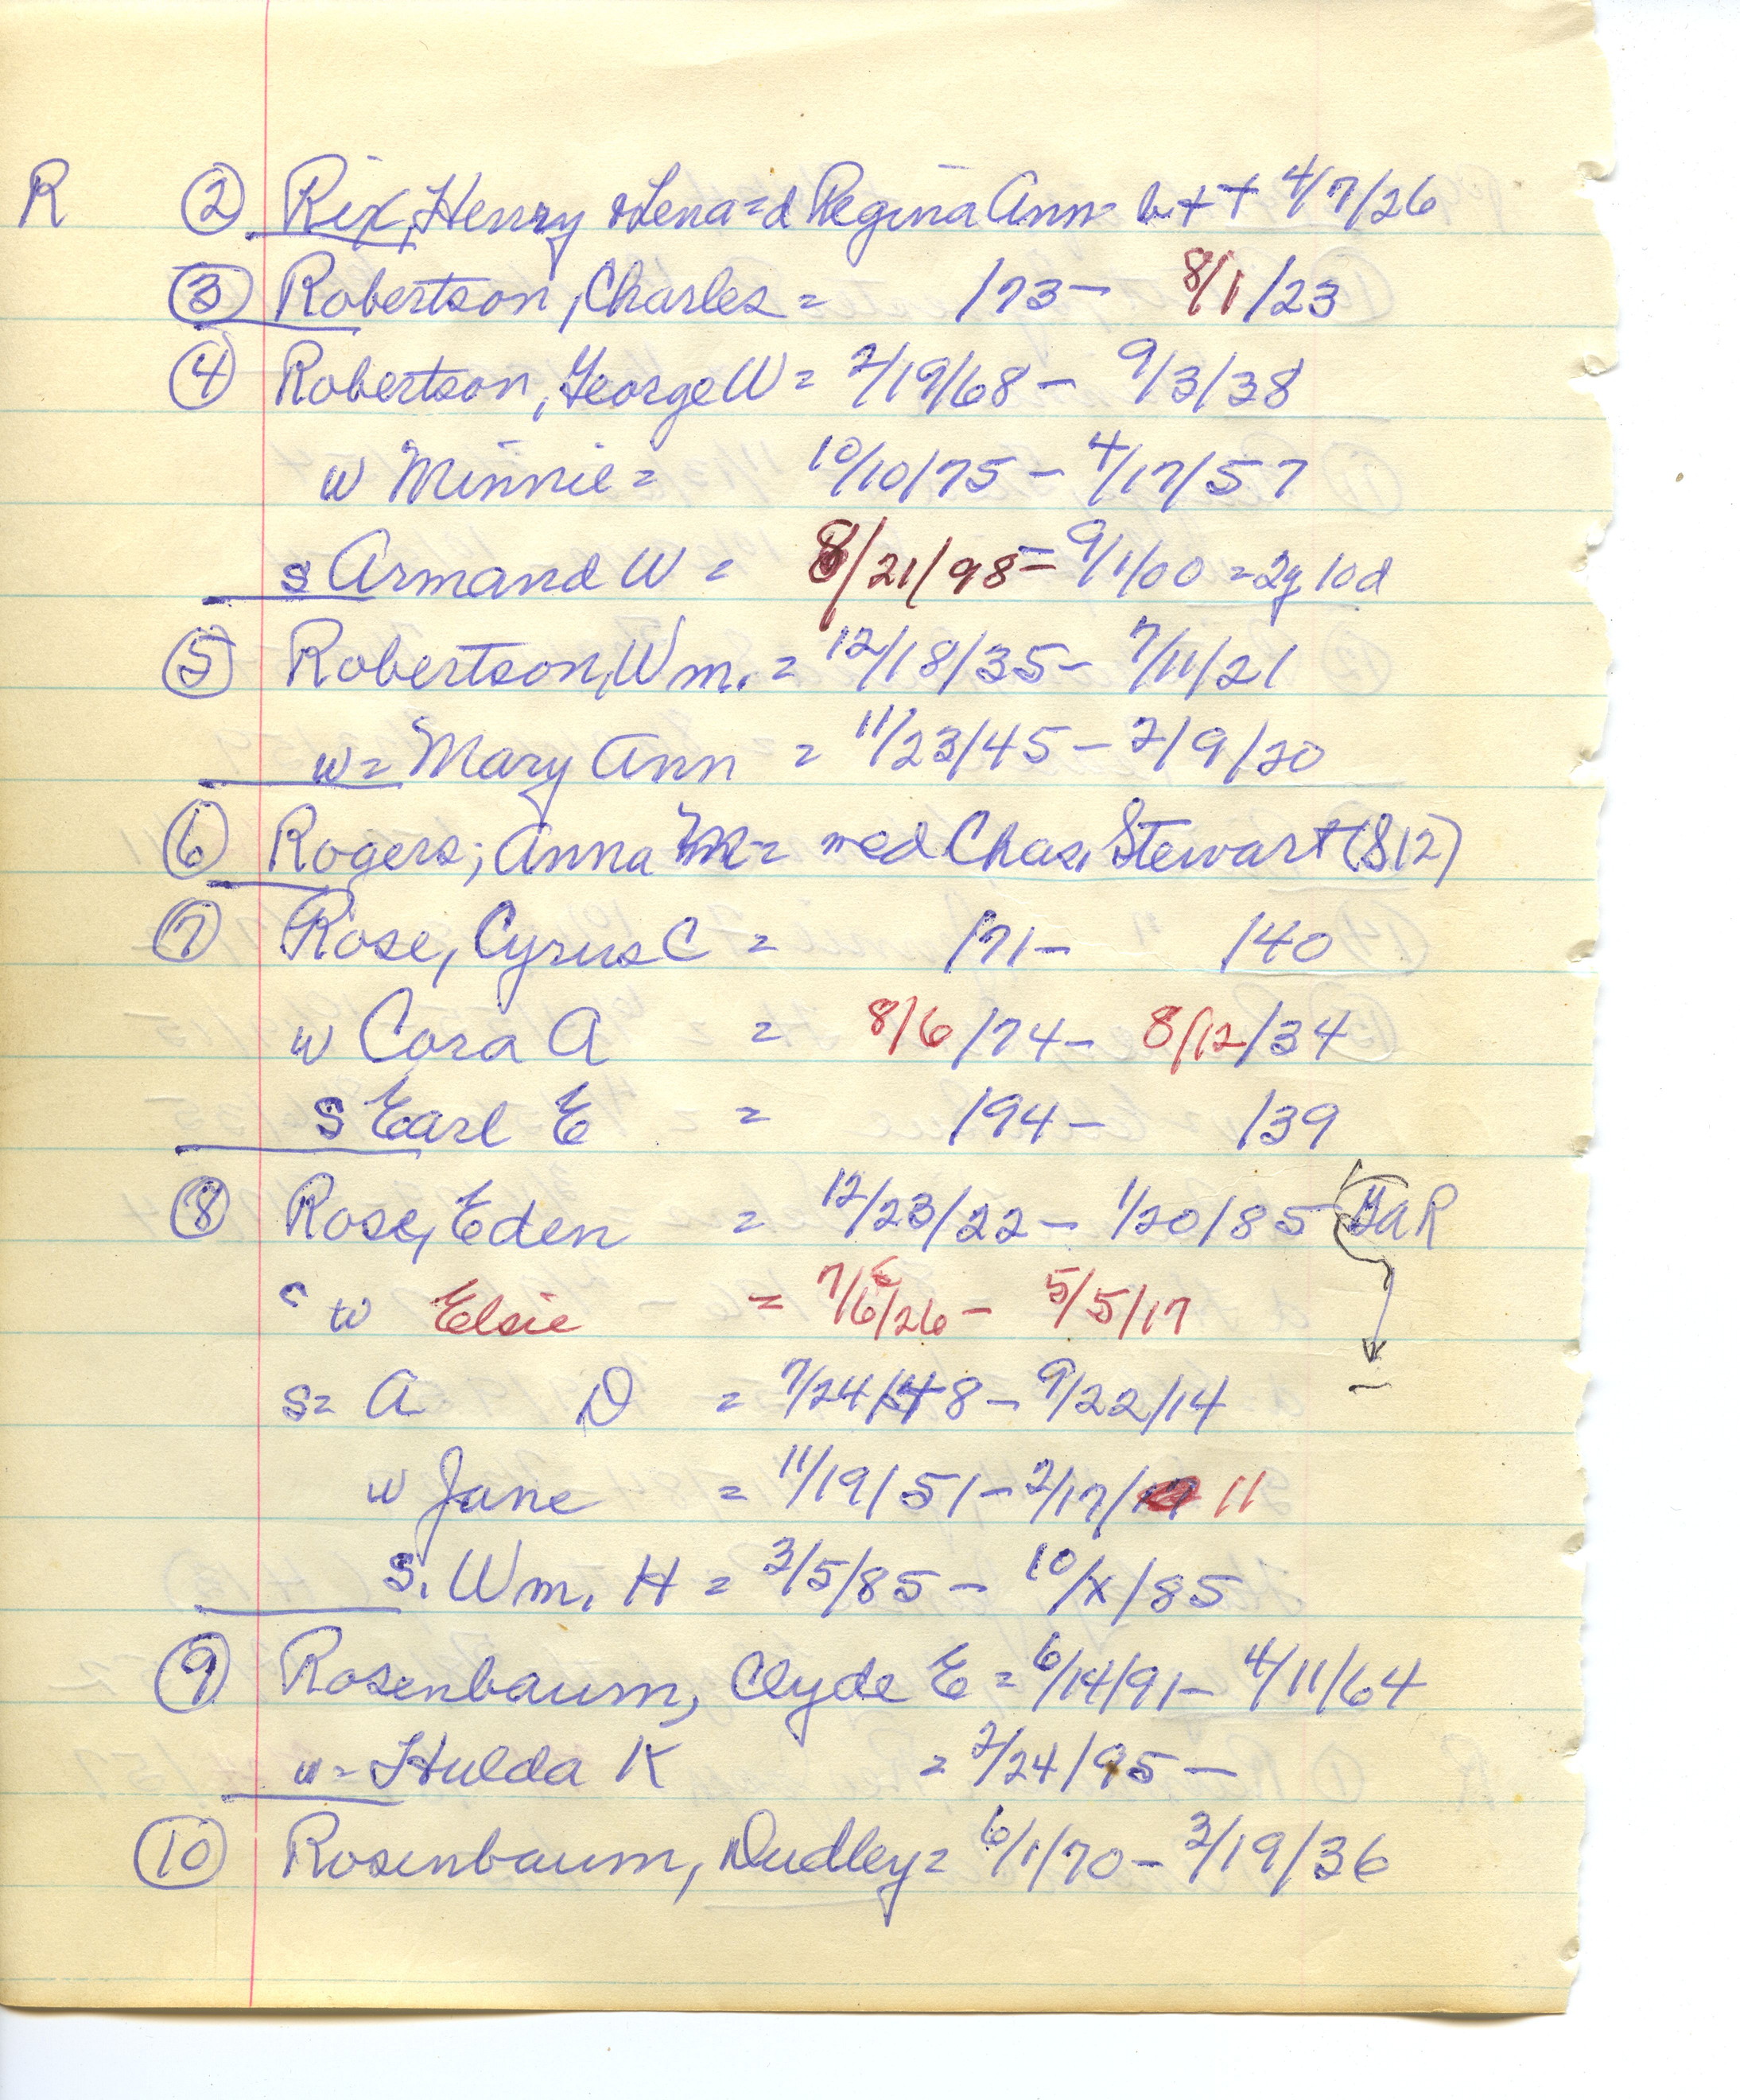 R ② Rix, Henry & Lena = d Regina Ann - b + † 4/7/26
③ Robertson, Charles = /73 - 8/1/23
④ Robertson, George W = 2/19/68 - 9/3/38
w Minnie = 10/10/75 - 4/17/57
s Armand W = 8/21/98 = 9/1/00 = 2y 10d
⑤ Robertson, Wm. = 12/18/35 - 7/11/21
w = Mary Ann = 11/23/45 - 2/9/20
⑥ Rogers; Anna M = med Chas. Stewart (S12)
⑦ Rose, Cyrus C = /71 - /40
w Cora A = 8/6/74 - 8/12/34
s Earl E = /94 - /39
⑧ Rose, Eden = 12/23/22 - 1/20/85 GAR
w Elsie = 7/6/26 - 5/5/17
s = A D = 7/24/48 - 9/22/14
w Jane = 11/19/51 - 2/17/11
s. Wm. H = 3/5/85 - 10/x/85
⑨ Rosenbaum, Clyde E = 6/14/91 - 4/11/64
w = Hulda K = 2/24/95 -
⑩ Rosenbaum, Dudley = 6/1/70 - 2/19/36